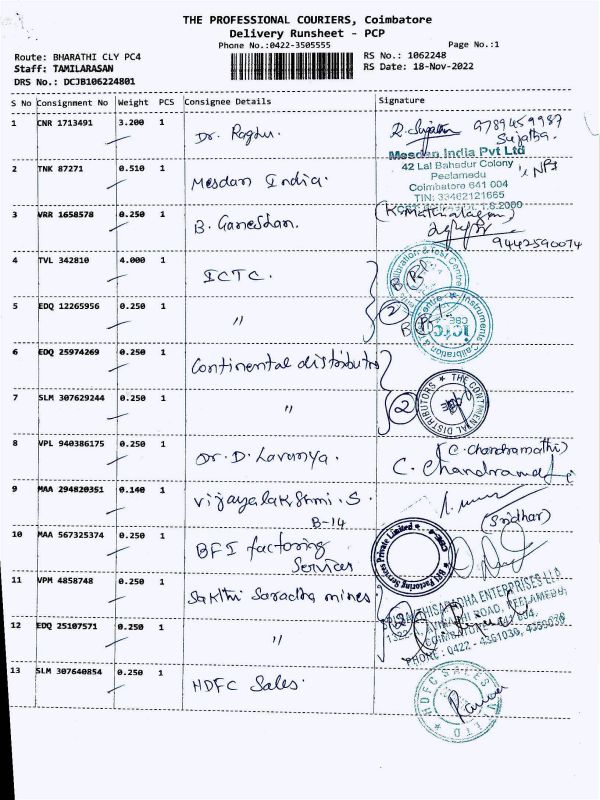 THE PROFESSIONAL COURIERS, Coimbatore
Delivery Runsheet - PCP
Phone No.:0422-3505555 Page No.:1
Route: BHARATHI CLY PC4 RS No.: 1062248
Staff: TAMILARASAN RS Date: 18-Nov-2022
DRS No.: DCJB106224801
S No Consignment No Weight PCS Consignee Details Signature
1 CNR 1713491 3.200 1 Dr. Raghu. 9789459987
Sujatha.
Mesdan India Pvt Ltd
2 TNK 87271 0.510 1 Mesdan India. 42 Lal Bahadur Colony
Peelamedu
Coimbatore 641 004
TIN: 33462121665
3 VRR 1658578 0.250 1 B. Ganeshan.
9442590074
4 TVL 342810 4.000 1 ICTC.
5 EDQ 12265956 0.250 1 " 2
6 EDQ 25974269 0.250 1 Continental distributors
7 SLM 307629244 0.250 1 " 2 THE CONTINENTAL DISTRIBUTORS
8 VPL 940386175 0.250 1 Dr. D. Lavanya. (C. Chandramathi)
9 MAA 294820351 0.140 1 Vijayalakshmi. S.
B-14 (Sridhar)
10 MAA 567325374 0.250 1 BFI factoring
Services
11 VPM 4858748 0.250 1 Sakthi Saradha mines
12 EDQ 25107571 0.250 1 " 2
COIMBATORE
PHONE: 0422 - 4361030, 4356036
13 SLM 307640854 0.250 1 HDFC Sales. HDFC SALES